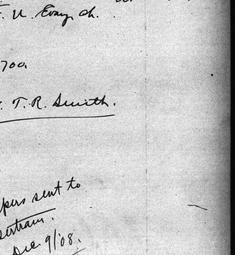 U. Evang. Ch.
700
T. R. Smith.
pers sent to
Bertram.
Dec. 9/08.